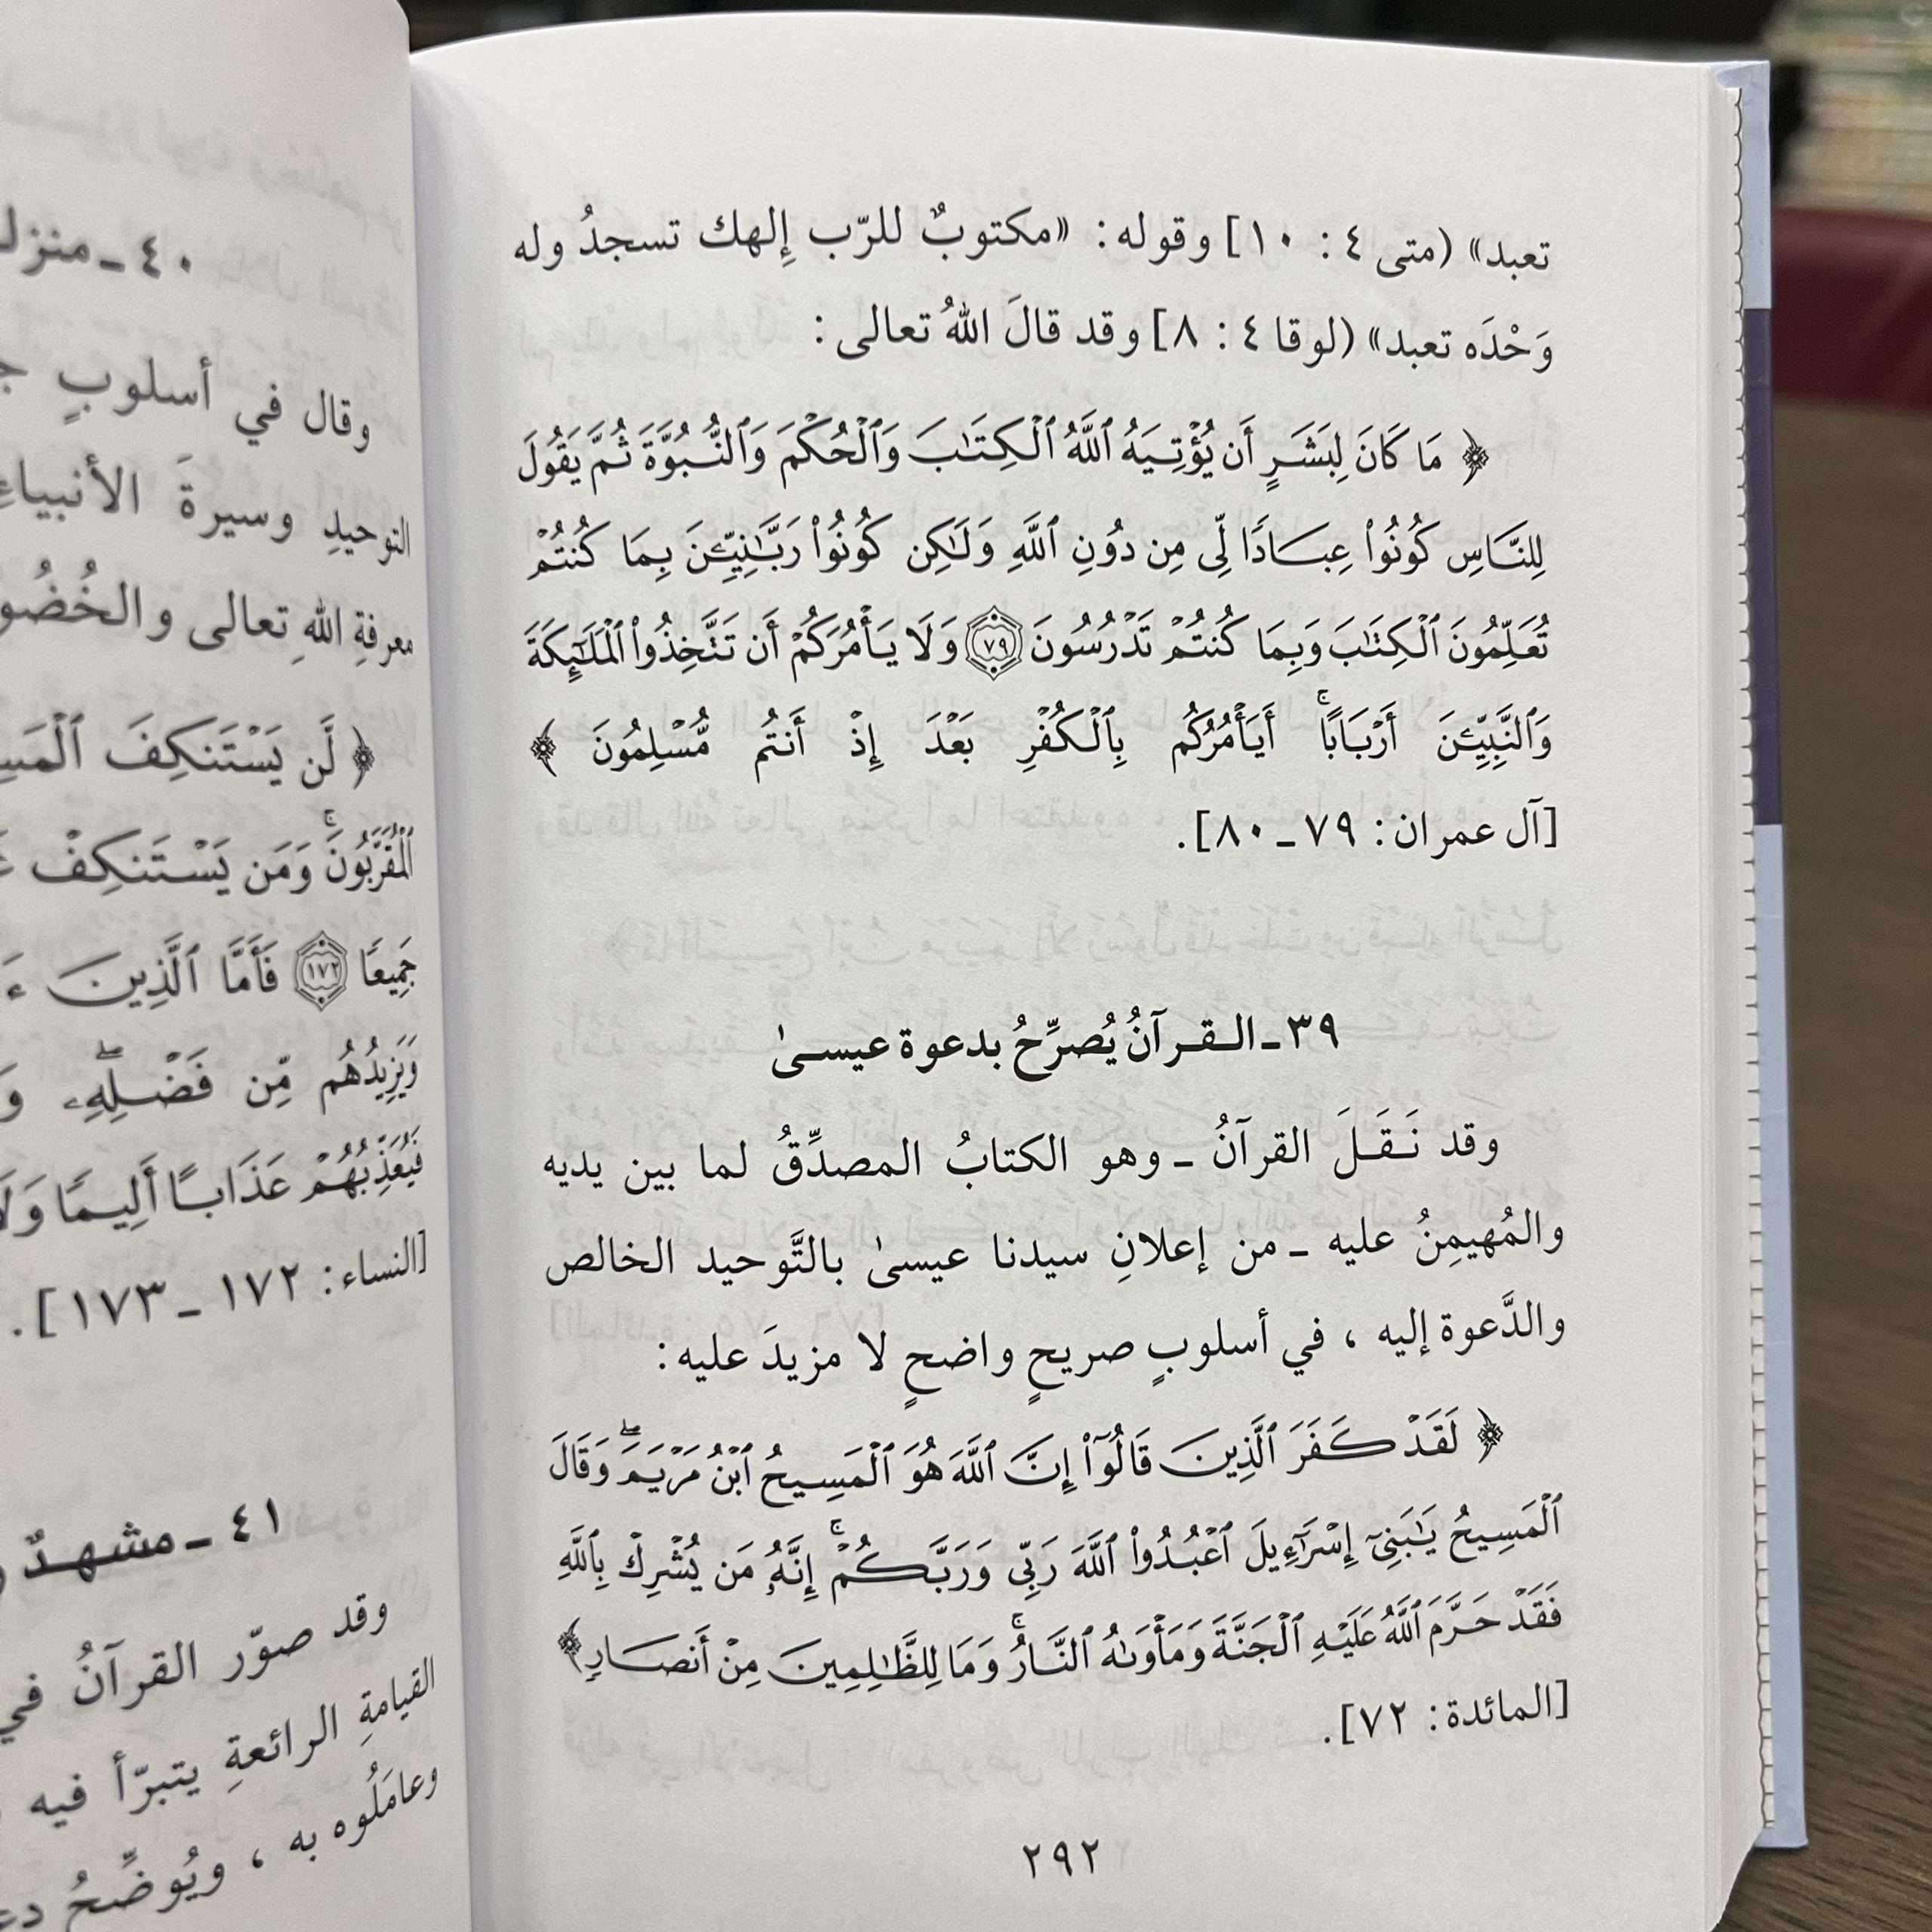 تعبد» (متى ٤ : ١٠] وقوله: «مكتوبٌ للرّب إِلهك تسجدُ وله
وَحْدَه تعبد» (لوقا ٤ : ٨] وقد قالَ اللهُ تعالى :
﴿ مَا كَانَ لِبَشَرٍ أَن يُؤْتِيَهُ ٱللَّهُ ٱلْكِتَٰبَ وَٱلْحُكْمَ وَٱلنُّبُوَّةَ ثُمَّ يَقُولَ
لِلنَّاسِ كُونُوا۟ عِبَادًا لِّى مِن دُونِ ٱللَّهِ وَلَٰكِن كُونُوا۟ رَبَّٰنِيِّـۧنَ بِمَا كُنتُمْ
تُعَلِّمُونَ ٱلْكِتَٰبَ وَبِمَا كُنتُمْ تَدْرُسُونَ ٧٩ وَلَا يَأْمُرَكُمْ أَن تَتَّخِذُوا۟ ٱلْمَلَٰٓئِكَةَ
وَٱلنَّبِيِّـۧنَ أَرْبَابًا ۚ أَيَأْمُرُكُم بِٱلْكُفْرِ بَعْدَ إِذْ أَنتُم مُّسْلِمُونَ ﴾
[آل عمران: ٧٩ـ٨٠].
٣٩ـ القرآنُ يُصرِّحُ بدعوة عيسىٰ
وقد نَقَلَ القرآنُ ـ وهو الكتابُ المصدِّقُ لما بين يديه
والمُهيمِنُ عليه ـ من إعلانِ سيدنا عيسىٰ بالتَّوحيد الخالص
والدَّعوة إليه ، في أسلوبٍ صريحٍ واضحٍ لا مزيدَ عليه:
﴿ لَقَدْ كَفَرَ ٱلَّذِينَ قَالُوٓا۟ إِنَّ ٱللَّهَ هُوَ ٱلْمَسِيحُ ٱبْنُ مَرْيَمَ ۖ وَقَالَ
ٱلْمَسِيحُ يَٰبَنِىٓ إِسْرَٰٓءِيلَ ٱعْبُدُوا۟ ٱللَّهَ رَبِّى وَرَبَّكُمْ ۚ إِنَّهُۥ مَن يُشْرِكْ بِٱللَّهِ
فَقَدْ حَرَّمَ ٱللَّهُ عَلَيْهِ ٱلْجَنَّةَ وَمَأْوَىٰهُ ٱلنَّارُ ۖ وَمَا لِلظَّٰلِمِينَ مِنْ أَنصَارٍ ﴾
[المائدة: ٧٢].
٢٩٢
٤٠ـ منزلـ
وقال في أسلوبٍ
التوحيدِ وسيرةَ الأنبياءِ
معرفةِ اللهِ تعالى والخُضُو
﴿ لَّن يَسْتَنكِفَ ٱلْمَسِ
ٱلْمُقَرَّبُونَ ۚ وَمَن يَسْتَنكِفْ
جَمِيعًا ١٧٢ فَأَمَّا ٱلَّذِينَ
وَيَزِيدُهُم مِّن فَضْلِهِۦ ۖ
فَيُعَذِّبُهُمْ عَذَابًا أَلِيمًا وَلَا
[النساء: ١٧٢ ـ ١٧٣].
٤١ـ مشهدٌ
وقد صوّر القرآنُ في
القيامةِ الرائعةِ يتبرّأ فيه
وعامَلُوه به ، ويُوضِّحُ